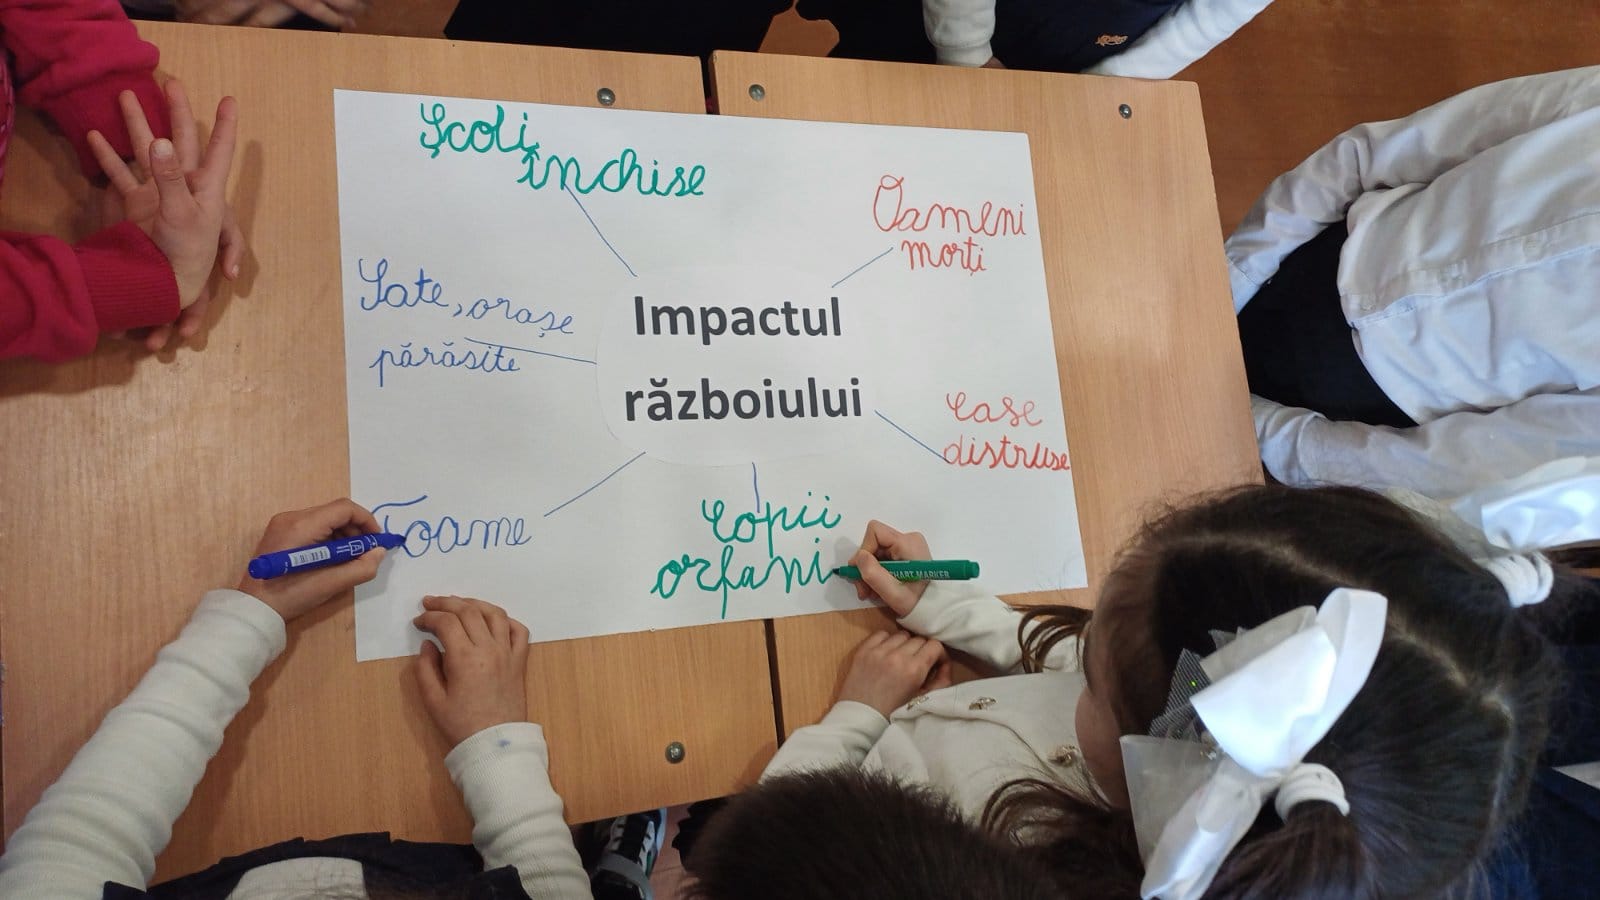 Școli
închise
Oameni
morți
Sate, orașe
părăsite
Impactul
războiului
Case
distruse
Foame
Copii
orfani
CHART MARKER